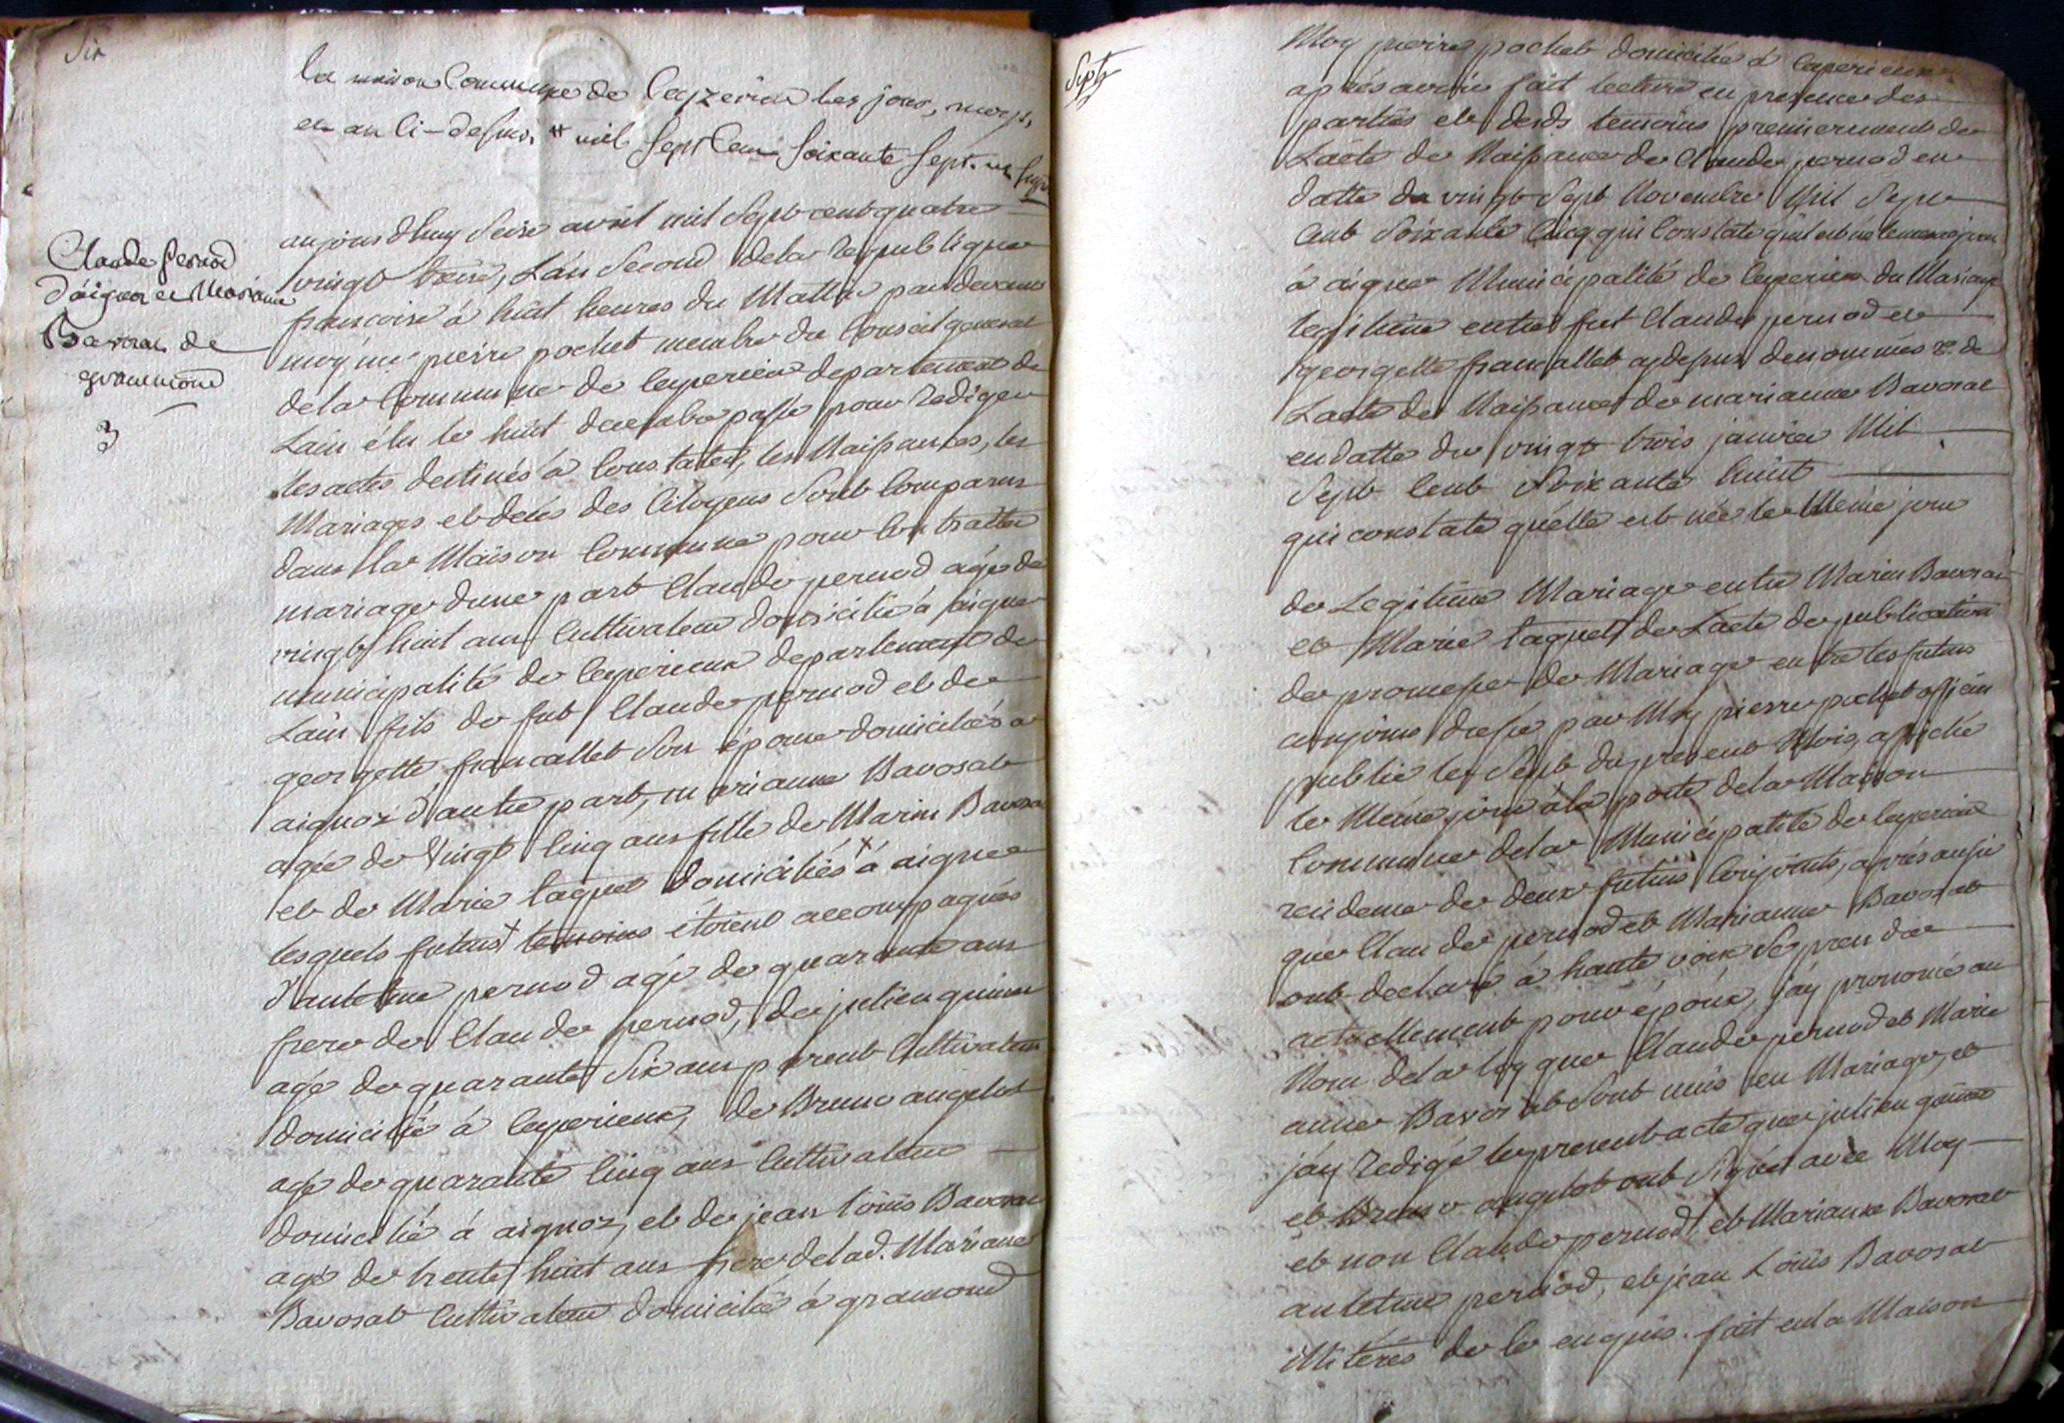 Six
la maison Commune de Ceyzerieu les jour, moys,
et an ci-dessus, # mil sept Cent soixante sept.
Claude pernod
d'aignoz et Mariane
Bavosat de
gramond
3
aujourdhuy seize avril mil sept cent quatre
vingt treize, L'an second de la Republique
francoise à huit heures du Mattin pardevant
moy pierre pochet membre du Conseil general
dela Commune de Ceyzerieu departement de
Lain élu le huit decembre passé pour Rediger
les actes destinés à Constater les Naissances, les
Mariages et décés des Citoyens sont Comparus
dans la Maison Commune pour Contratter
mariage dune part Claude pernod agé de
vingt huit ans Cultivateur domicilié à aignoz
municipalité de Ceyzerieux departement de
Lain fils de fut Claude pernod et de
georgette francallet son épouse domiciliés a
aignoz d'autre part, marianne Bavosat
agée de vingt Cinq ans fille de Marin Bavosat
et de Marie taquet domiciliés x à aignoz
lesquels futurs + temoins étoient accompagnés
d'antelme pernod agé de quarante ans
frere de Claude pernod, de julien guinet
agé de quarante six ans parent Cultivateur
domicilié à Ceyzerieux, de Bruno angelot
agé de quarante Cinq ans Cultivateur
domicilié à aignoz, et de jean Loüis Bavosat
agé de trente huit ans frere delad. Mariane
Bavosat Cultivateur domicilié à gramond
Sept
Moy pierre pochet domicilié à Ceyzerieux
aprés avoir fait lecture en presence des
parties et desds temoins premierement de
Lacte de Naissance de Claude pernod en
datte du vingt sept Novembre Mil sept
Cent soixante Cinq qui Constate quil est né le meme jour
à aignoz Municipalité de Ceyzerieu du Mariage
legitime entre fut Claude pernod et
georgette francallet cydessus denommés 2° de
Lacte de Naissance de marianne Bavosat
en datte du vingt trois janvier Mil
Sept Cent soixante huit
qui constate qu'elle est née le Même jour
de Legitime Mariage entre Marin Bavosat
et Marie taquet de Lacte de publication
de promesse de Mariage entre les futurs
conjoins dressé par Moy pierre pochet officier
publié le sept du present Mois, affiché
le Même jour à la porte dela Maison
Commune dela Municipalité de Ceyzerieu
residence de deux futurs Conjoints, aprés aussi
que Claude pernod et Marianne Bavosat
ont declaré à haute voix se prendre
actuellement pour époux, j'ay prononcé au
Nom dela loy que Claude pernod et Marie
anne Bavosat sont unis en Mariage, et
j'ay Redigé le present acte que julien guinet
et Bruno angelot ont signés avec Moy
et non Claude pernod, et Marianne Bavosat
antelme pernod, et jean Loüis Bavosat
illiterés de ce enquis. fait en la Maison